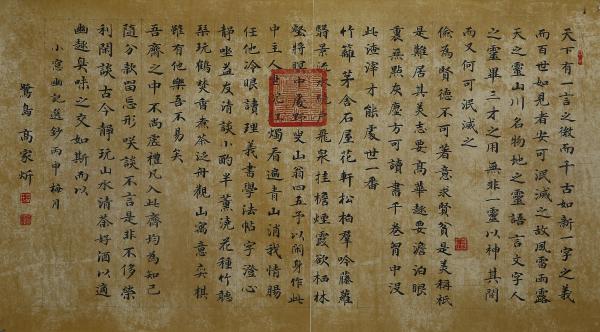 天下有一言之微而千古如新一字之義
而百世如見者安可泯滅之故風雷雨露
天之靈山川名物地之靈語言文字人
之靈畢三才之用無非一靈以神其間
而又何可泯滅之
儉為賢德不可著意求賢貧是美稱祇
是難居其美志要高華趣要澹泊眼
裏無點灰塵方可讀書千卷胷中没
些渣滓才能處世一番
竹籬茅舍石屋花軒松柏羣吟藤蘿
翳景流水繞戶飛泉挂檐煙霞欲栖林
壑將瞑中處野叟山翁四五予以閑身作此
中主人坐沉紅燭看遍青山消我情腸
任他冷眼讀理義書學法帖字澄心
靜坐益友清談小酌半薰澆花種竹聽
琴玩鶴焚香煮茶泛舟觀山寓意奕棋
雖有他樂吾不易矣
吾齋之中不尚虛禮凡入此齋均為知己
隨分款留忘形咲談不言是非不侈榮
利閑談古今靜玩山水清茶好酒以適
幽趣臭味之交如斯而以
小窓幽記選鈔丙申梅月
鷺島高家炘